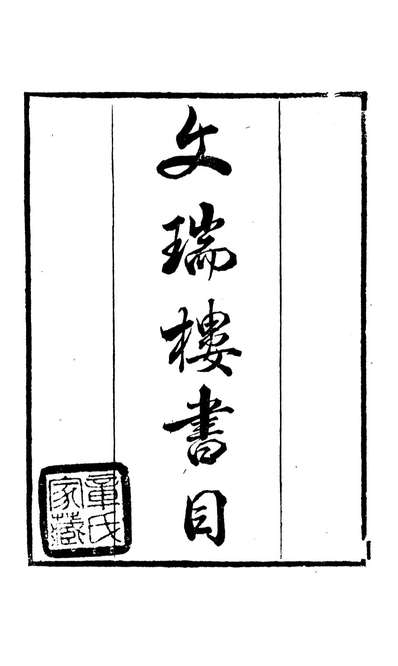 文瑞樓書目
章氏
家藏